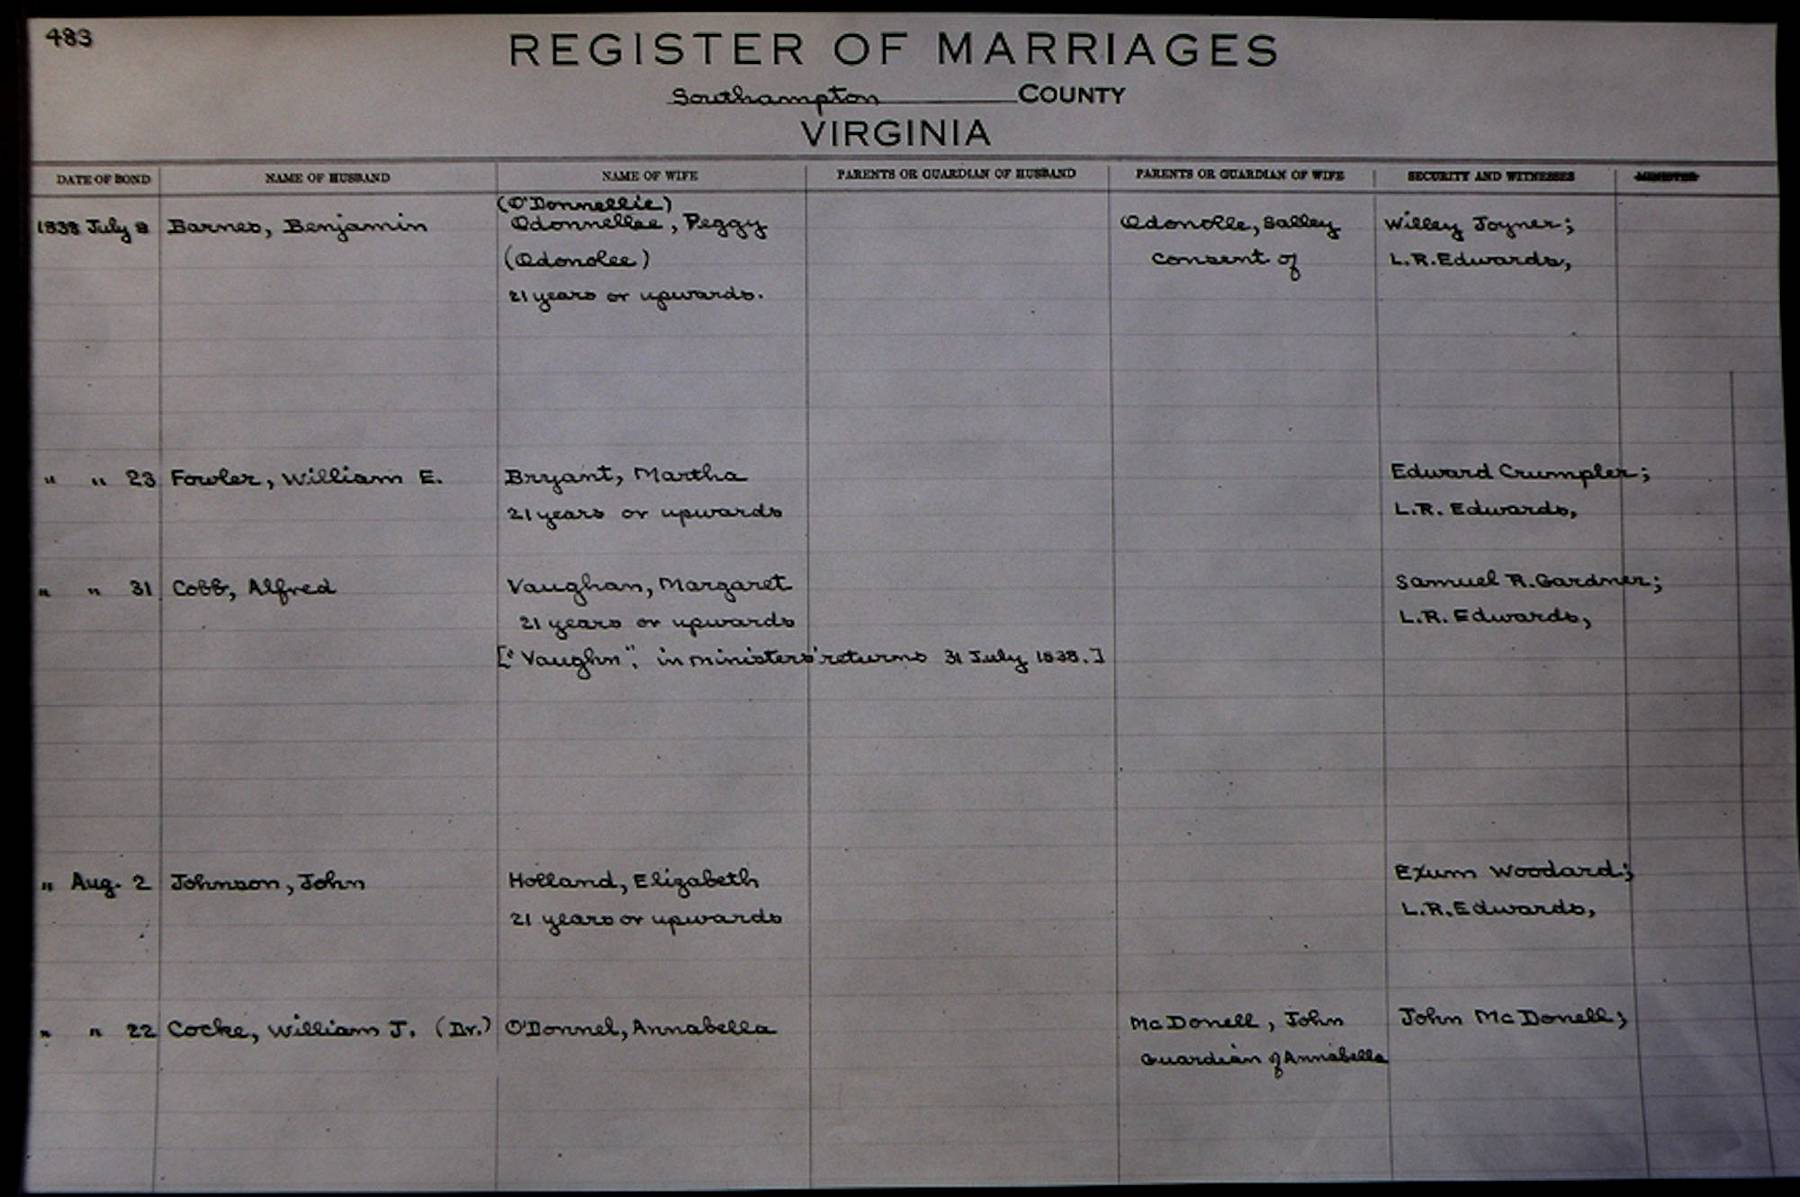 483
REGISTER OF MARRIAGES
Southampton COUNTY
VIRGINIA
DATE OF BOND NAME OF HUSBAND NAME OF WIFE PARENTS OR GUARDIAN OF HUSBAND PARENTS OR GUARDIAN OF WIFE SECURITY AND WITNESSES MINISTER
(O'Donnellie)
1838 July 9 Barnes, Benjamin Odonnellee, Peggy Odonolle, Salley Willey Joyner;
(Odonolee) consent of L.R.Edwards,
21 years or upwards.
" " 23 Fowler, William E. Bryant, Martha Edward Crumpler;
21 years or upwards L.R. Edwards,
" " 31 Cobb, Alfred Vaughan, Margaret Samuel R. Gardner;
21 years or upwards L.R. Edwards,
["Vaughn", in ministers' returns 31 July 1838.]
" Aug. 2 Johnson, John Holland, Elizabeth Exum Woodard;
21 years or upwards L.R.Edwards,
" " 22 Cocke, William J. (Dr.) O'Donnel, Annabella McDonell, John John McDonell;
Guardian of Annabella